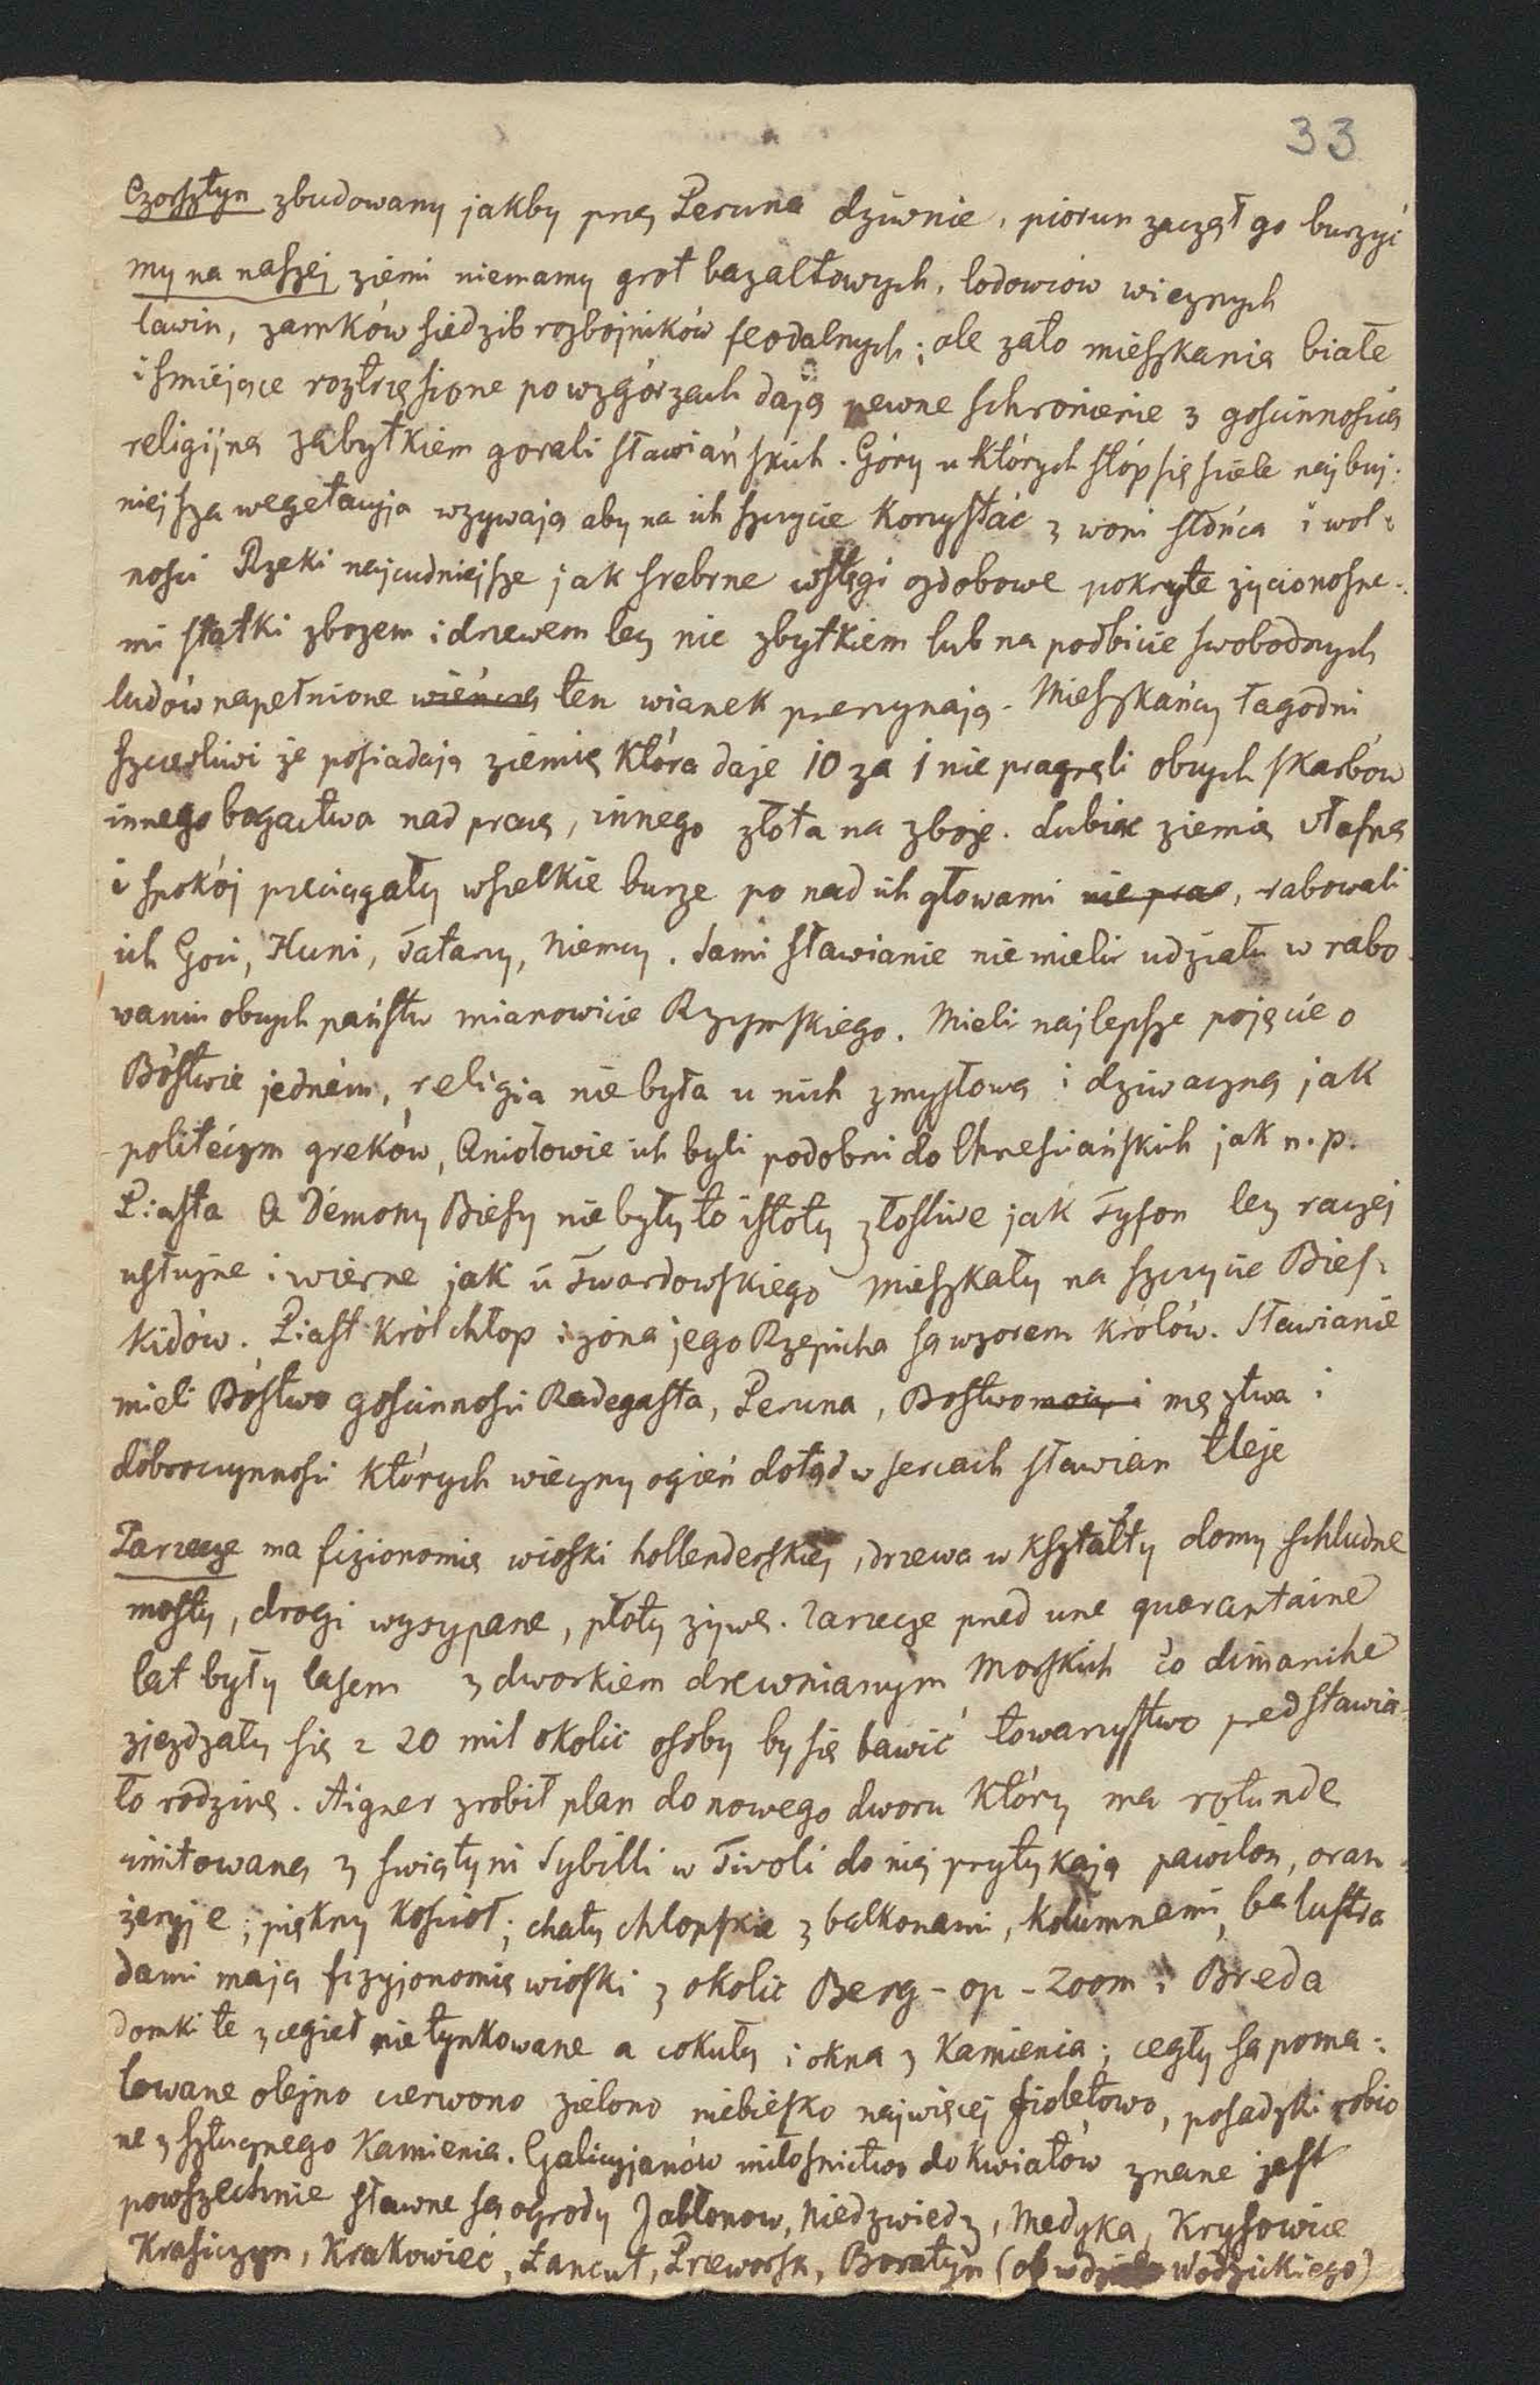 33
Czorsztyn zbudowany jakby przez Peruna dziwnie, piorun zaczął go burzyć
my na naszej ziemi niemamy grot bazaltowych, lodowców wiecznych
lawin, zamków siedzib rozbojników feodalnych; ale zato mieszkania białe
i smiejące roztrzęsione po wzgórzach dają pewne schronienie z goscinnoscią
religijną zabytkiem gorali sławiańskich. Góry u których stóp się sciele najbuj-
niejsza wegetacyja wzywają aby na ich szczycie korzystać z woni słońca i wol-
nosci Rzeki najcudniejsze jak srebrne wstęgi ozdobowe pokryte zycionosne-
mi statki zbozem i drzewem lecz nie zbytkiem lub na podbicie swobodnych
ludów napełnione wieńczą ten wianek przerzynają. Mieszkańcy łagodni
szczesliwi ze posiadają ziemię która daje 10 za 1 nie pragnęli obcych skarbów
innego bogactwa nad pracę, innego złota na zboze. Lubiąc ziemię własną
i spokój przeciągały wszelkie burze po nad ich głowami nie prac, rabowali
ich Goci, Huni, Tatarzy, Niemcy. Sami Sławianie nie mieli udziału w rabo-
waniu obcych państw mianowicie Rzymskiego. Mieli najlepsze pojęcie o
Bóstwie jedném, religia nie była u nich zmysłową i dziwaczną jak
politeizm greków, Aniołowie ich byli podobni do Chrzesciańskich jak n.p.
Piasta a Démony Biesy nie były to istoty złosliwe jak Tyfon lecz raczej
usłużne i wierne jak u Twardowskiego mieszkały na szczycie Bies-
kidów. Piast Król chłop i zona jego Rzepicha są wzorem królów. Sławianie
mieli Bóstwo goscinnosci Radegasta, Peruna, Bostwo mocy i męztwa i
dobroczynnosci których wieczny ogień dotąd w sercach sławian tleje
Zarzecze ma fizionomię wioski hollenderskiej, drzewa w kształty domy schludne
mosty, drogi wysypane, płoty zywe. Zarzecze przed une quarantaine
lat były lasem z dworkiem drewnianym Morskich co dimanche
zjezdzały się z 20 mil okolic osoby by się bawić towarzystwo przedstawia-
ło rodzinę. Aigner zrobił plan do nowego dworu który ma rotunde
imitowaną z swiątyni Sybilli w Tivoli do niej przytykają pawilon, oran-
żeryje; piękny kosciół; chaty chlopskie z balkonami, kolumnami, balustra
dami mają fizyjonomię wioski z okolic Berg-op-Zoom i Breda
domki te z cegieł nietynkowane a cokuły i okna z kamienia; cegły są poma-
lowane olejno czerwono zielono niebiesko najwięcej fioletowo, posadzki robio
ne z sztucznego kamienia. Galicyjanów miłosnictwo do kwiatów znane jest
powszechnie sławne są ogrody Jabłonow, Niedzwiedz, Medyka, Krysowice
Krasiczyn, Krakowiec, Łancut, Przeworsk, Boratyn (ob Wodzickiego)